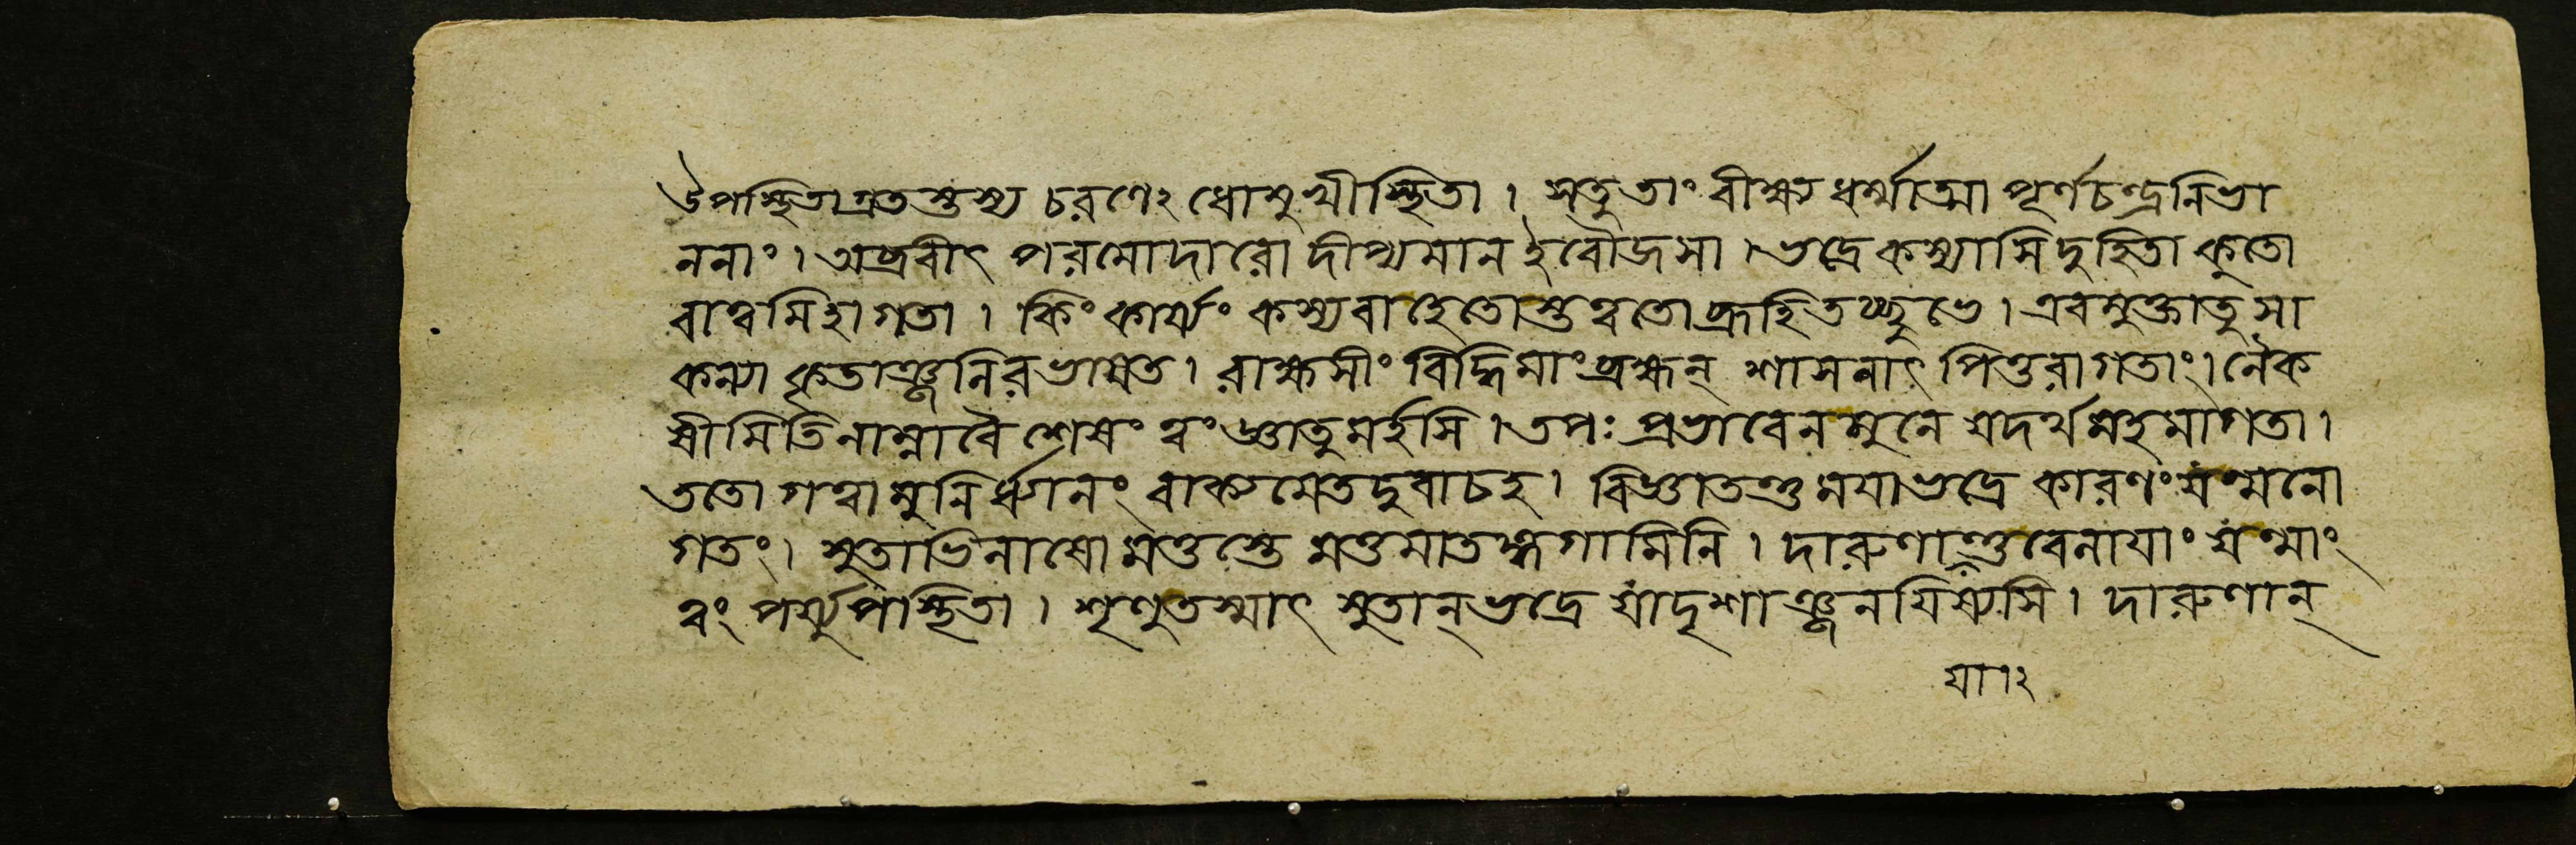 উপস্থিতাগ্রতস্তস্য চরণেঽধোমুখীস্থিতা । সতুতাং বীক্ষ্যধর্ম্মাত্মা পূর্ণচন্দ্রনিভা
ননাং । অব্রবীৎ পরমোদারো দীপ্যমান ইবৌজসা । ভদ্রে কস্যাসিদুহিতা কুতো
বাত্বমিহাগতা । কিং কার্য্যং কস্যবাহেতোস্তত্বতোব্রূহিতচ্ছুভে । এবমুক্তাতুসা
কন্যা কৃতাঞ্জলিরভাষত । রাক্ষসীং বিদ্ধিমাংব্রহ্মন্ শাসনাৎ পিতুরাগতাং । নৈক
ষীমিতিনাম্নাবৈ শেষং ত্বংজ্ঞাতুমর্হসি । তপঃ প্রভাবেনমুনে যদর্থমহমাগতা ।
ততো গত্বামুনির্ধ্যানং বাক্যমেতদুবাচহ । বিজ্ঞাতন্তুময়াভদ্রে কারণংযন্মনো
গতং । সুতাভিলাষোমত্তস্তে মত্তমাতঙ্গগামিনি । দারুণায়ান্তুবেলায়াং যন্মাং
ত্বং পর্য্যুপস্থিতা । শৃণুতস্মাৎ সুতান্ভদ্রে যাদৃশাঞ্জনয়িষ্যসি । দারুণান্
য়া।২